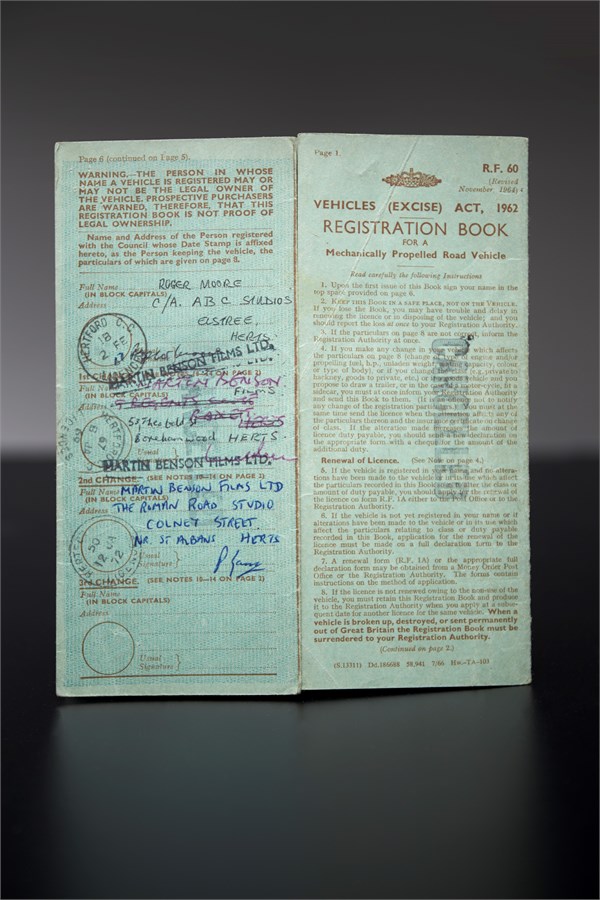 Page 6 (continued on Page 5).
WARNING.—THE PERSON IN WHOSE
NAME A VEHICLE IS REGISTERED MAY OR
MAY NOT BE THE LEGAL OWNER OF
THE VEHICLE. PROSPECTIVE PURCHASERS
ARE WARNED, THEREFORE, THAT THIS
REGISTRATION BOOK IS NOT PROOF OF
LEGAL OWNERSHIP.
Name and Address of the Person registered
with the Council whose Date Stamp is affixed
hereto, as the Person keeping the vehicle, the
particulars of which are given on page 8.
Full Name ROGER MOORE
(IN BLOCK CAPITALS)
Address C/A. A B C STUDIOS
ELSTREE.
HERTS
HERTFORD C.C.
18
2 FE
MARTIN BENSON FILMS LTD.
Full Name MARTIN BENSON
(IN BLOCK CAPITALS) FILMS
Address
Borehamwood HERTS
Usual
MARTIN BENSON FILMS LTD.
2nd CHANGE. (SEE NOTES 10—14 ON PAGE 2)
Full Name MARTIN BENSON FILMS LTD
(IN BLOCK CAPITALS)
Address THE ROMAN ROAD STUDIO
COLNEY STREET.
NR. ST ALBANS HERTS
Usual
Signature
3rd CHANGE. (SEE NOTES 10—14 ON PAGE 2)
Full Name
(IN BLOCK CAPITALS)
Address
Usual
Signature
Page 1.
R.F. 60
(Revised
November 1964)
VEHICLES (EXCISE) ACT, 1962
REGISTRATION BOOK
FOR A
Mechanically Propelled Road Vehicle
Read carefully the following Instructions
1. Upon the first issue of this Book sign your name in the
top space provided on page 6.
2. KEEP THIS BOOK IN A SAFE PLACE, NOT ON THE VEHICLE.
If you lose the Book, you may have trouble and delay in
renewing the licence or in disposing of the vehicle; and you
should report the loss at once to your Registration Authority.
3. If the particulars on page 8 are not correct, inform the
Registration Authority at once.
4. If you make any change in your which affects
the particulars on page 8 (change of and/or
propelling
or type of body), or if you change (e.g. private to
hackney, goods to private, etc.) or vehicle and you
propose to draw a trailer, or in the a
sidecar, you must at once inform your
and send this Book to them. (It is not notify
any change of the registration at the
same time send the licence when the any of
the particulars thereon and the change
of class. If the alteration the amount
licence duty payable, you should declaration on
the appropriate form and a cheque for the amount of the
additional duty.
Renewal of Licence. (See Note on page 4.)
5. If the vehicle is registered in and no altera-
tions have been made to the vehicle or in its use which affect
the particulars recorded in this Book the class or
amount of duty payable, you should the renewal of
the licence on form R.F. 1A either to the Post Office or to the
Registration Authority.
6. If the vehicle is not yet registered in your name or if
alterations have been made to the vehicle or in its use which
affect the particulars relating to class or duty payable
recorded in this Book, application for the renewal of the
licence must be made on a full declaration form to the
Registration Authority.
7. A renewal form (R.F. 1A) or the appropriate full
declaration form may be obtained from a Money Order Post
Office or the Registration Authority. The forms contain
instructions on the method of application.
8. If the licence is not renewed owing to the non-use of the
vehicle, you must retain this Registration Book and produce
it to the Registration Authority when you apply at a subse-
quent date for another licence for the same vehicle. When a
vehicle is broken up, destroyed, or sent permanently
out of Great Britain the Registration Book must be
surrendered to your Registration Authority.
(Continued on page 2.)
CANCELLED